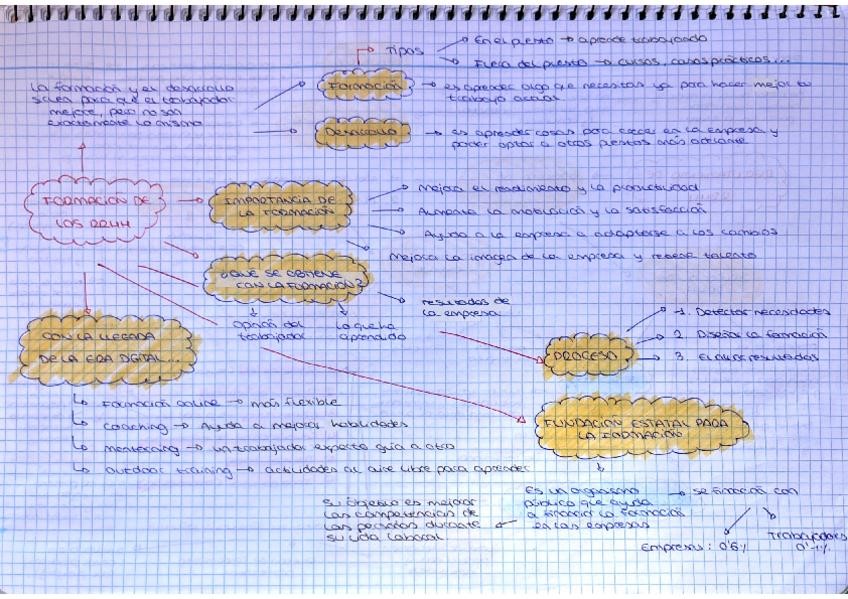 Tipos
En el puesto → aprende trabajando
Fuera del puesto → cursos, casos prácticos...
La formación y el desarrollo
sirven para que el trabajador
mejore, pero no son
exactamente lo mismo
Formación
→ es aprender algo que necesitas ya para hacer mejor tu
trabajo actual
Desarrollo
→ es aprender cosas para crecer en la empresa y
poder optar a otros puestos más adelante
FORMACIÓN DE
LOS RRHH
IMPORTANCIA DE
LA FORMACIÓN
Mejora el rendimiento y la productividad
Aumenta la motivación y la satisfacción
Ayuda a la empresa a adaptarse a los cambios
Mejora la imagen de la empresa y retiene talento
¿QUÉ SE OBTIENE
CON LA FORMACIÓN?
Opinión del
trabajador
Lo que ha
aprendido
resultados de
la empresa
PROCESO
1. Detectar necesidades
2. Diseñar la formación
3. Evaluar resultados
CON LA LLEGADA
DE LA ERA DIGITAL...
Formación online → más flexible
Coaching → Ayuda a mejorar habilidades
mentoring → un trabajador experto guía a otro
outdoor training → actividades al aire libre para aprender
FUNDACIÓN ESTATAL PARA
LA FORMACIÓN
Es un organismo
público que ayuda
a financiar la formación
en las empresas
Su objetivo es mejorar
las competencias de
las personas durante
su vida laboral
→ se financia con
Empresas: 0'6%
Trabajadores
0'1%